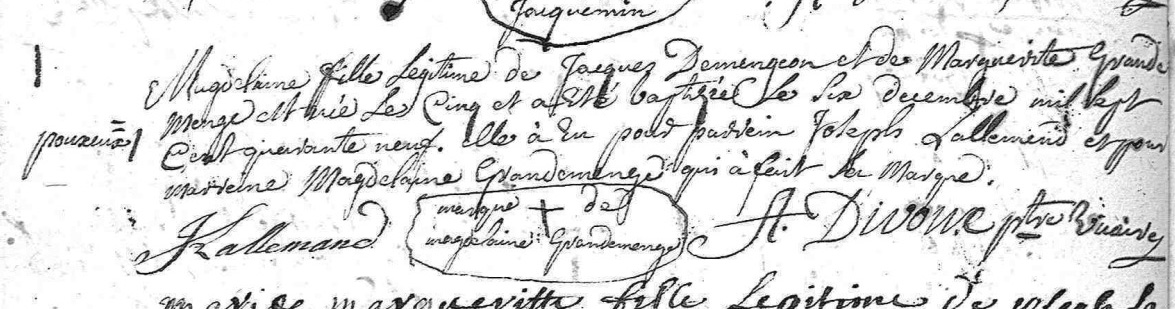 Jacquemin
Magdelaine fille Legitime de Jacques Demengeon et de Marguerite Grande
Menge est née Les Cinq et a Eté baptizée Le Six decembre mil sept
pouxeux Cent quarante neuf. elle à Eu pour parrein Joseph Lallemend et pour
marreine Magdelaine Grandemenge qui à fait sa Marque.
JLallemand marque + de A. Divoux ptre
magdelaine Grandemenge
margueritte fille Legitime de